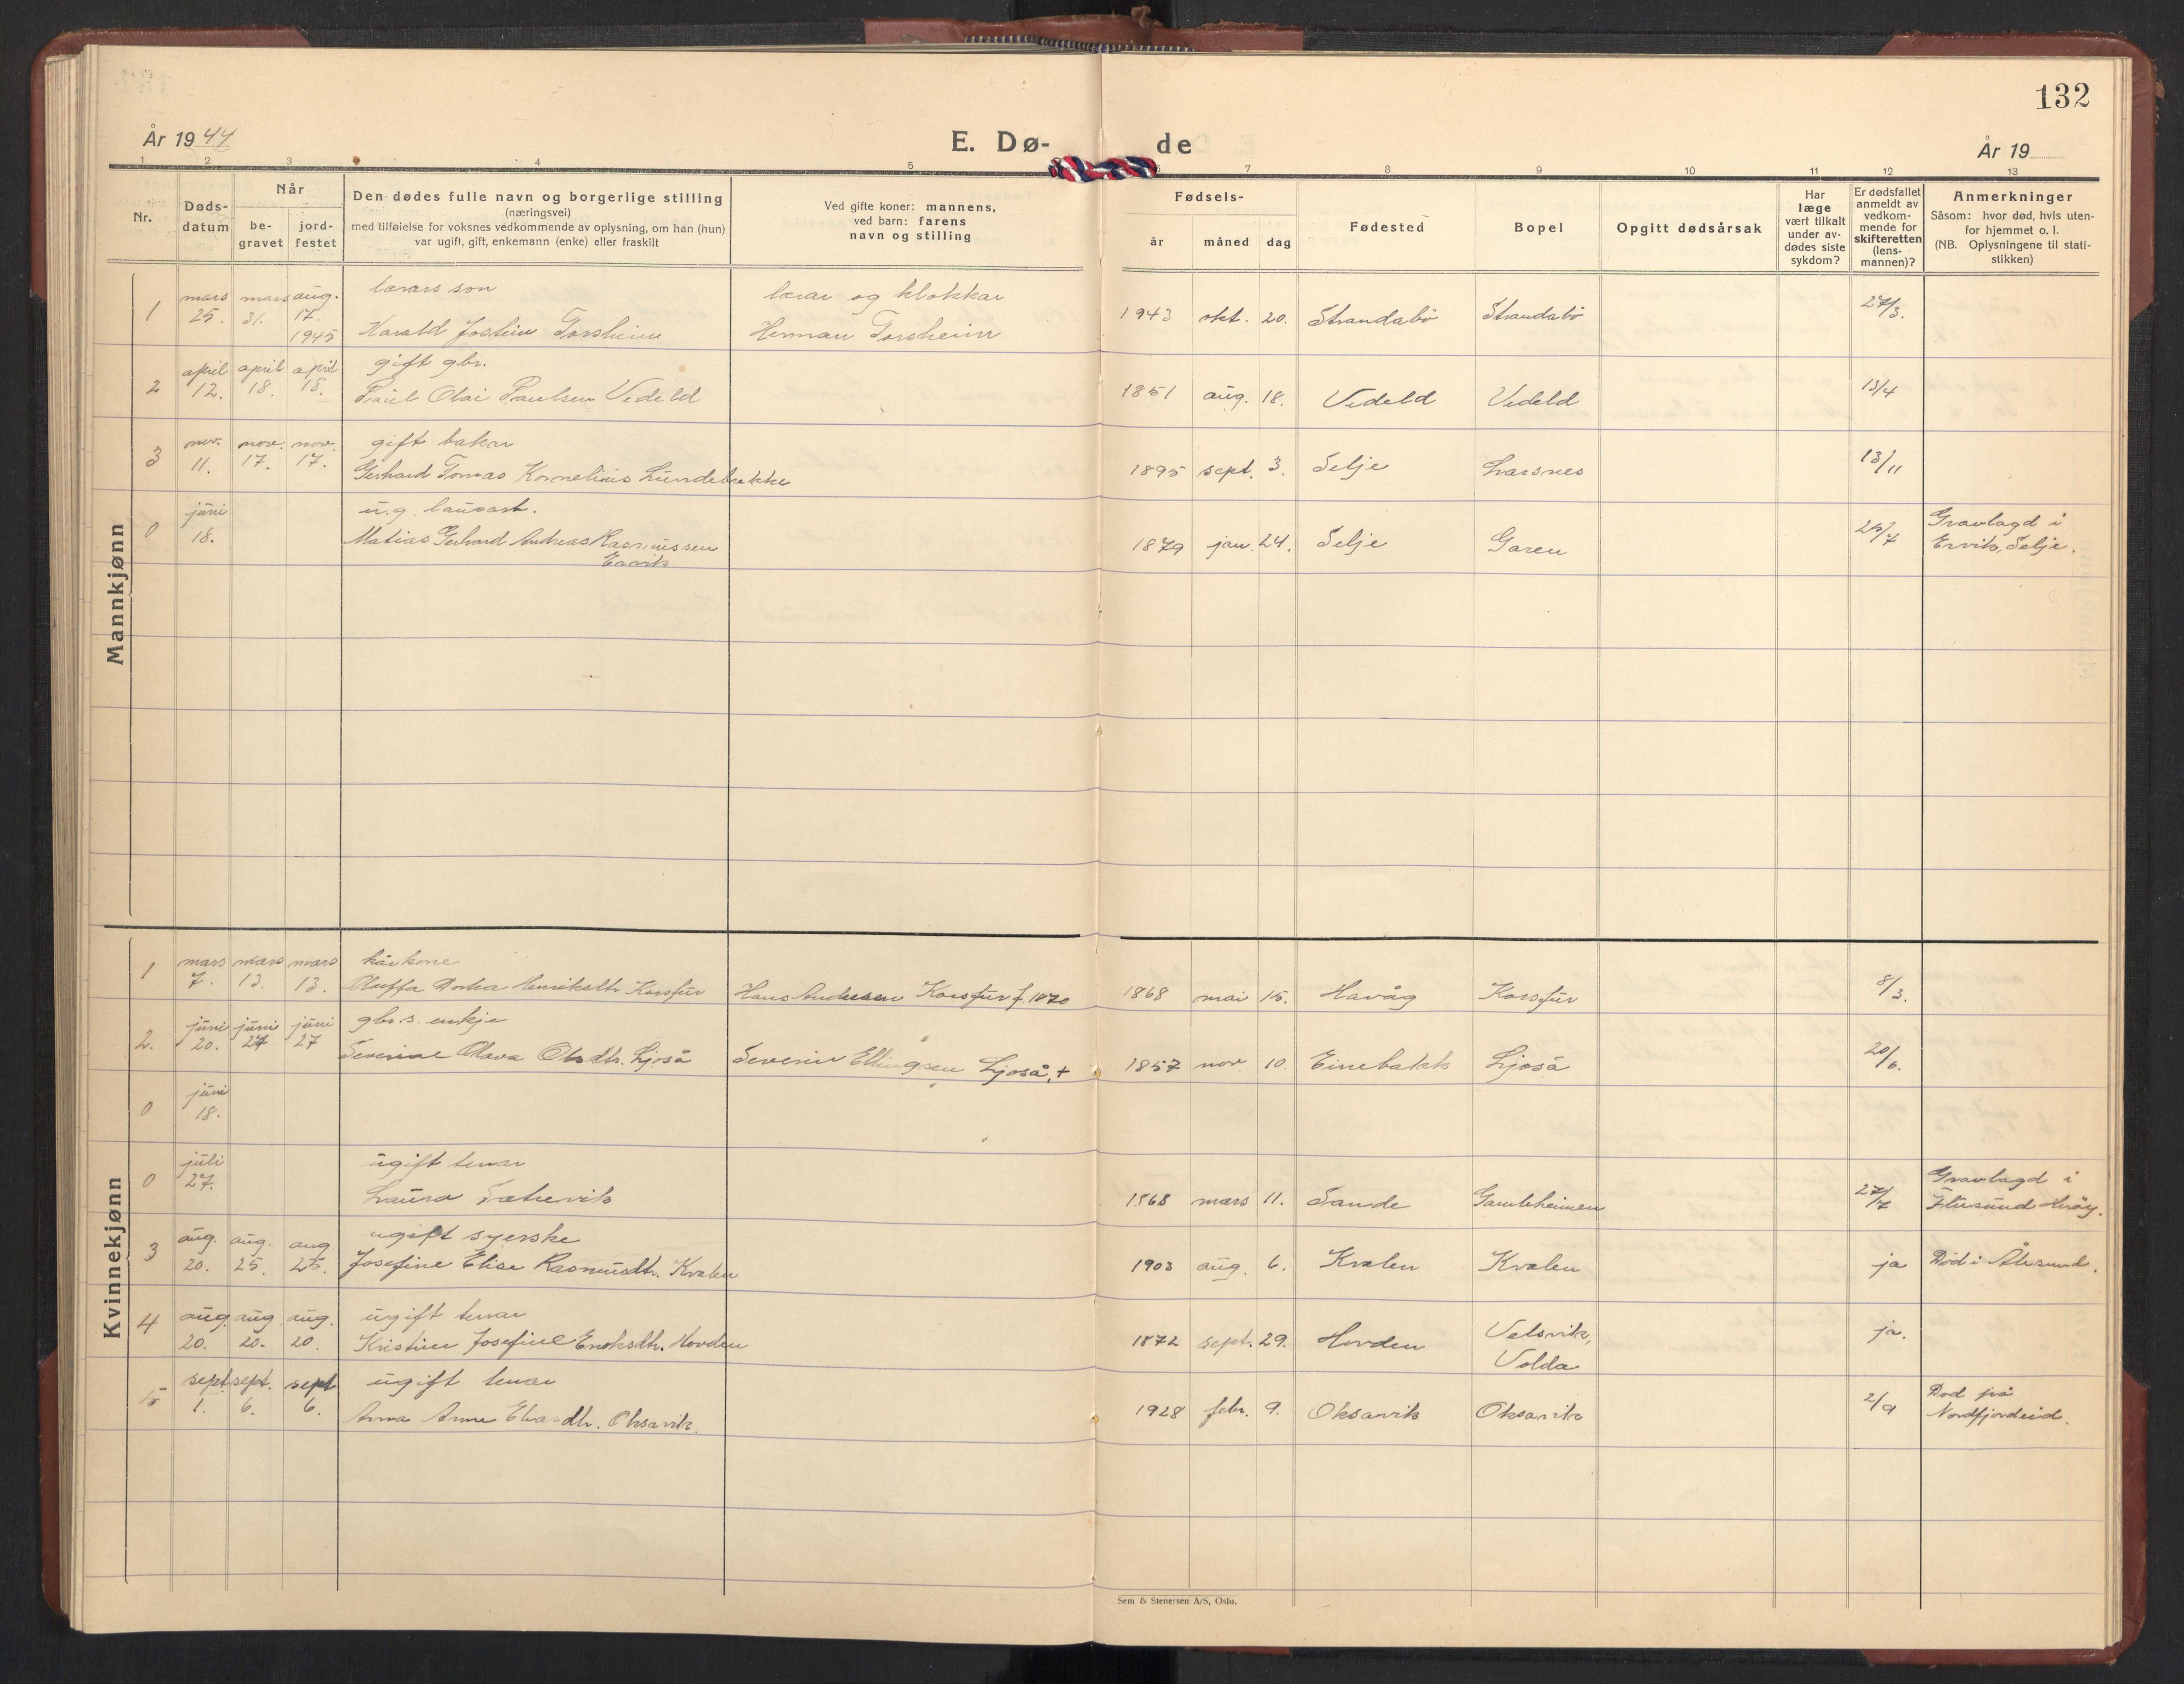 132
År 1944
E. Dø-
de
År 19
1 2 3 4 5 6 7 8 9 10 11 12 13
Nr.
Døds-
datum
Når
be-
gravet
jord-
festet
Den dødes fulle navn og borgerlige stilling
(næringsvei)
med tilføielse for voksnes vedkommende av oplysning, om han (hun)
var ugift, gift, enkemann (enke) eller fraskilt
Ved gifte koner: mannens,
ved barn: farens
navn og stilling
Fødsels-
år
måned
dag
Fødested
Bopel
Opgitt dødsårsak
Har
læge
vært tilkalt
under av-
dødes siste
sykdom?
Er dødsfallet
anmeldt av
vedkom-
mende for
skifteretten
(lens-
mannen)?
Anmerkninger
Såsom: hvor død, hvis uten-
for hjemmet o. l.
(NB. Oplysningene til stati-
stikken)
Mannkjønn
mars mars aug. lærars son lærar og klokkar
1 25. 31. 17. 1945 Harald Jostein Torsheim Herman Torsheim 1943 okt. 20. Strandabø Strandabø 27/3.
april april april gift gbr.
2 12. 18. 18. Paul Olai Paulsen Vedeld 1851 aug. 18. Vedeld Vedeld 13/4
nov. nov. nov. gift bakar
3 11. 17. 17. Gerhard Tomas Kornelius Lundebrekke 1895 sept. 3. Selje Larsnes 13/11
juni u.g. lausarb. Gravlagd i
0 18. Matias Gerhard Andreas Rasmussen 1879 jan. 24. Selje Garen Ervik, Selje.
Ervik
Kvinnekjønn
mars mars mars kårkone
1 7. 13. 13. Oluffa Dortea Henriksdtr. Korsfur Hans Andreasen Korsfur f. 1870 1868 mai 15. Havåg Korsfur 8/3.
juni juni juni gbr.s. enkje
2. 20. 27 27 Severine Olava Olsdtr. Ljoså Severin Ellingsen Ljoså, + 1857 nov. 10. Einebakk Ljoså 20/6.
juni
0 18.
juli ugift tenar Gravlagd i
0 27. Laura Sætrevik 1868 mars 11. Sande Gamleheimen 27/7 Herøy.
aug. aug. aug ugift syerske
3 20. 25. 25. Josefine Elise Rasmusdtr. Kvalen 1903 aug. 6. Kvalen Kvalen ja Død i Ålesund.
aug. aug. aug. ugift tenar
4 20. 20. 20. Kristine Josefine Enoksdtr. Hovden 1872 sept. 29. Hovden Velsvik, ja.
Volda
sept. sept. sept ugift tenar Død på
5 1. 6. 6. Anna Anne Eliasdtr. Oksavik. 1928 febr. 9. Oksavik Oksavik 2/9 Nordfjordeid.
Sem & Stenersen A/S, Oslo.